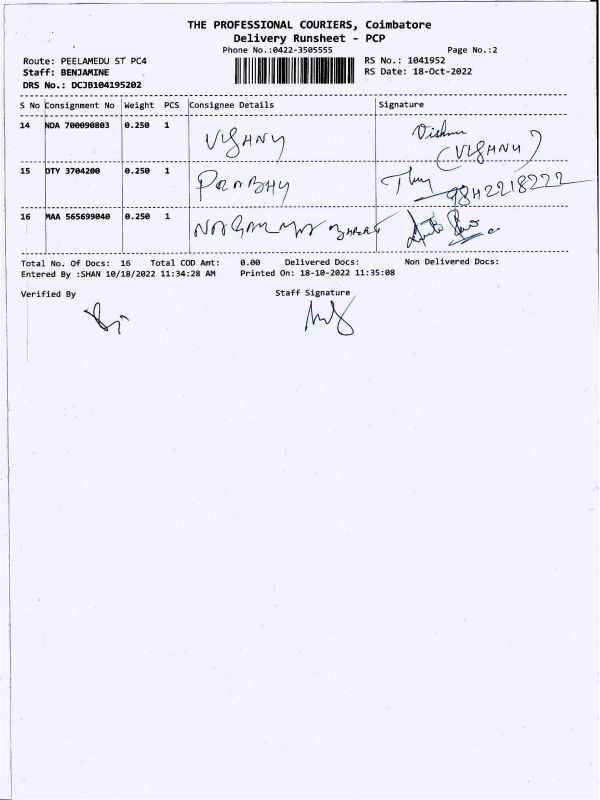 THE PROFESSIONAL COURIERS, Coimbatore
Delivery Runsheet - PCP
Phone No.:0422-3505555 Page No.:2
Route: PEELAMEDU ST PC4 RS No.: 1041952
Staff: BENJAMINE RS Date: 18-Oct-2022
DRS No.: DCJB104195202
S No Consignment No Weight PCS Consignee Details Signature
14 NDA 700090803 0.250 1 VISHNU Vishnu
(VISHNU)
15 OTY 3704200 0.250 1 PRABHU
9842218222
16 MAA 565699040 0.250 1
Total No. Of Docs: 16 Total COD Amt: 0.00 Delivered Docs: Non Delivered Docs:
Entered By :SHAN 10/18/2022 11:34:28 AM Printed On: 18-10-2022 11:35:08
Verified By Staff Signature